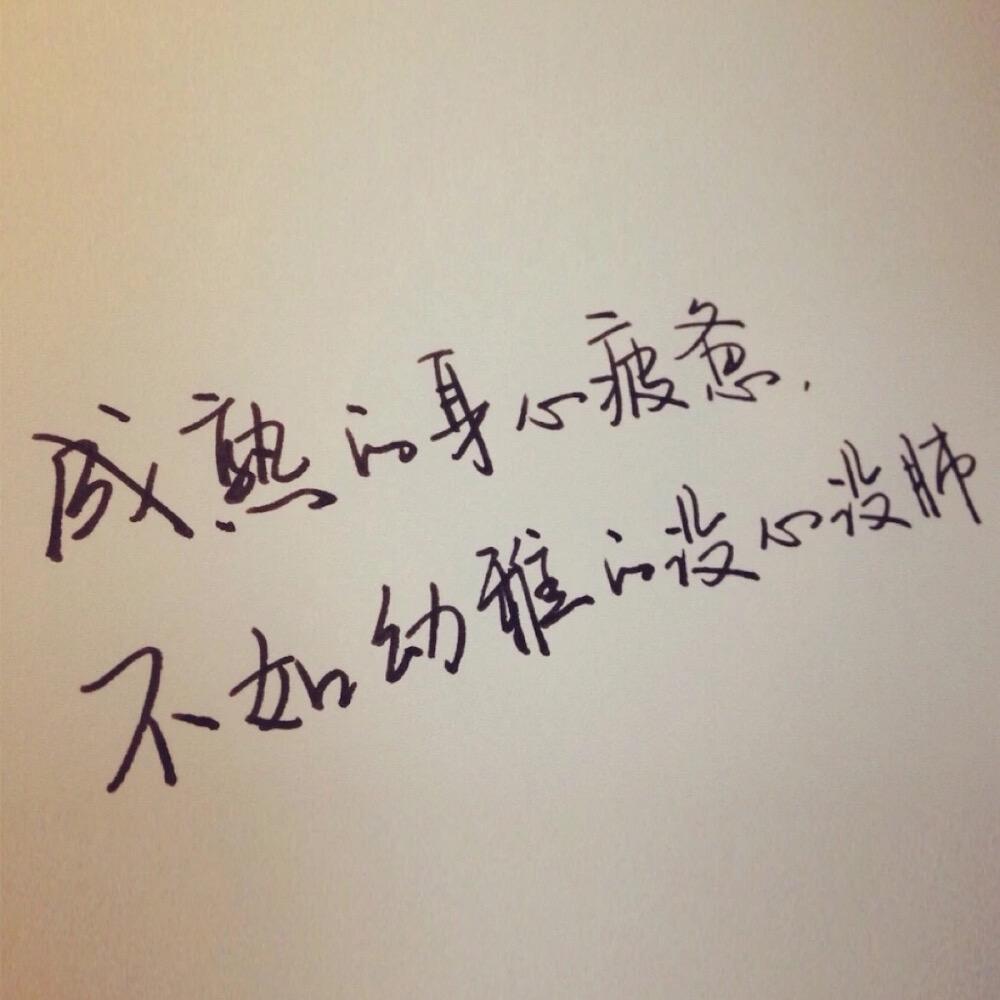 成熟的身心疲惫,
不如幼稚的没心没肺